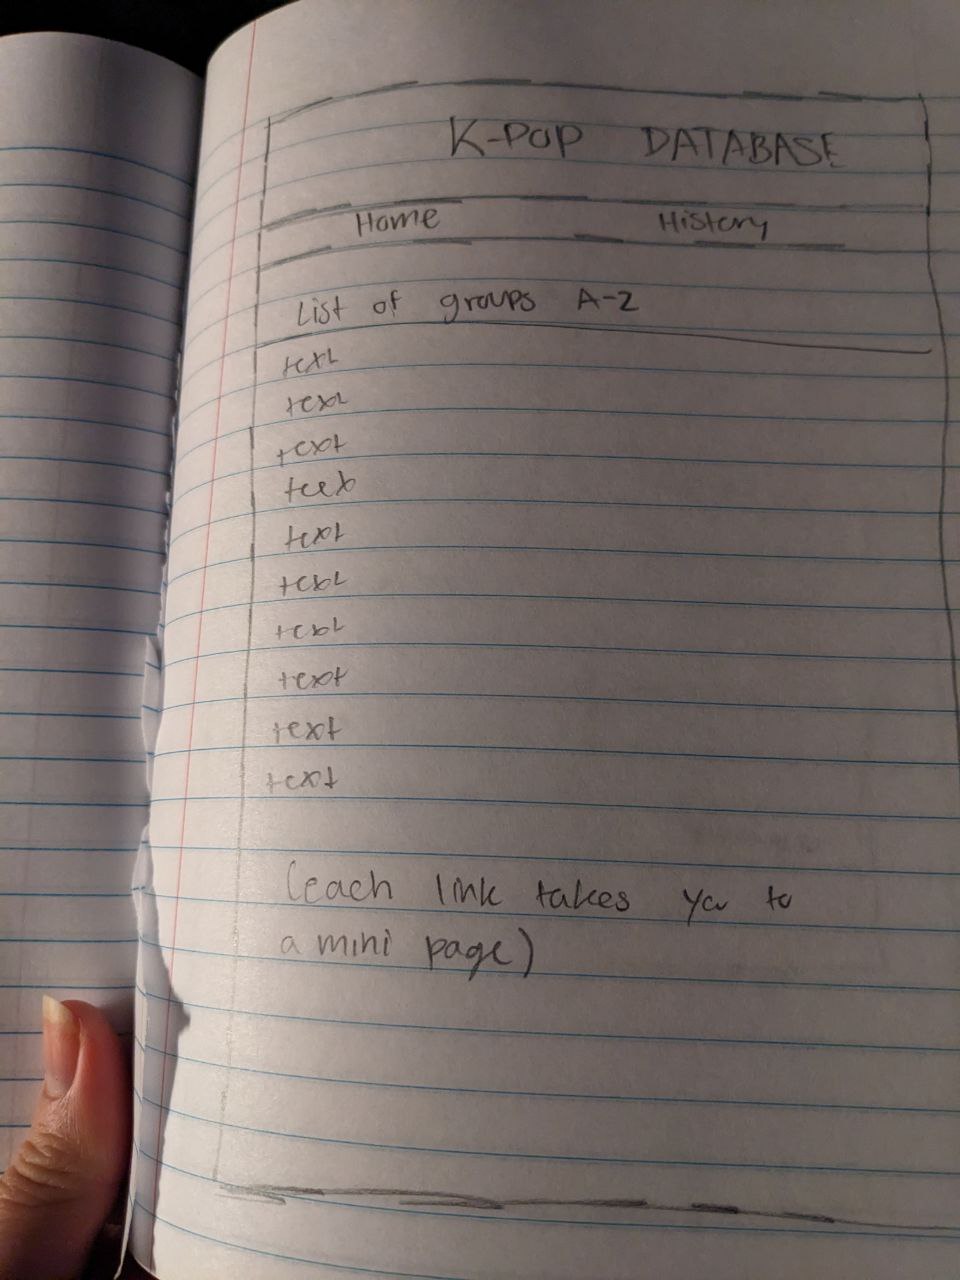 K-POP DATABASE
Home History
List of groups A-Z
text
text
text
teext
text
text
text
text
text
text
(each link takes you to
a mini page)